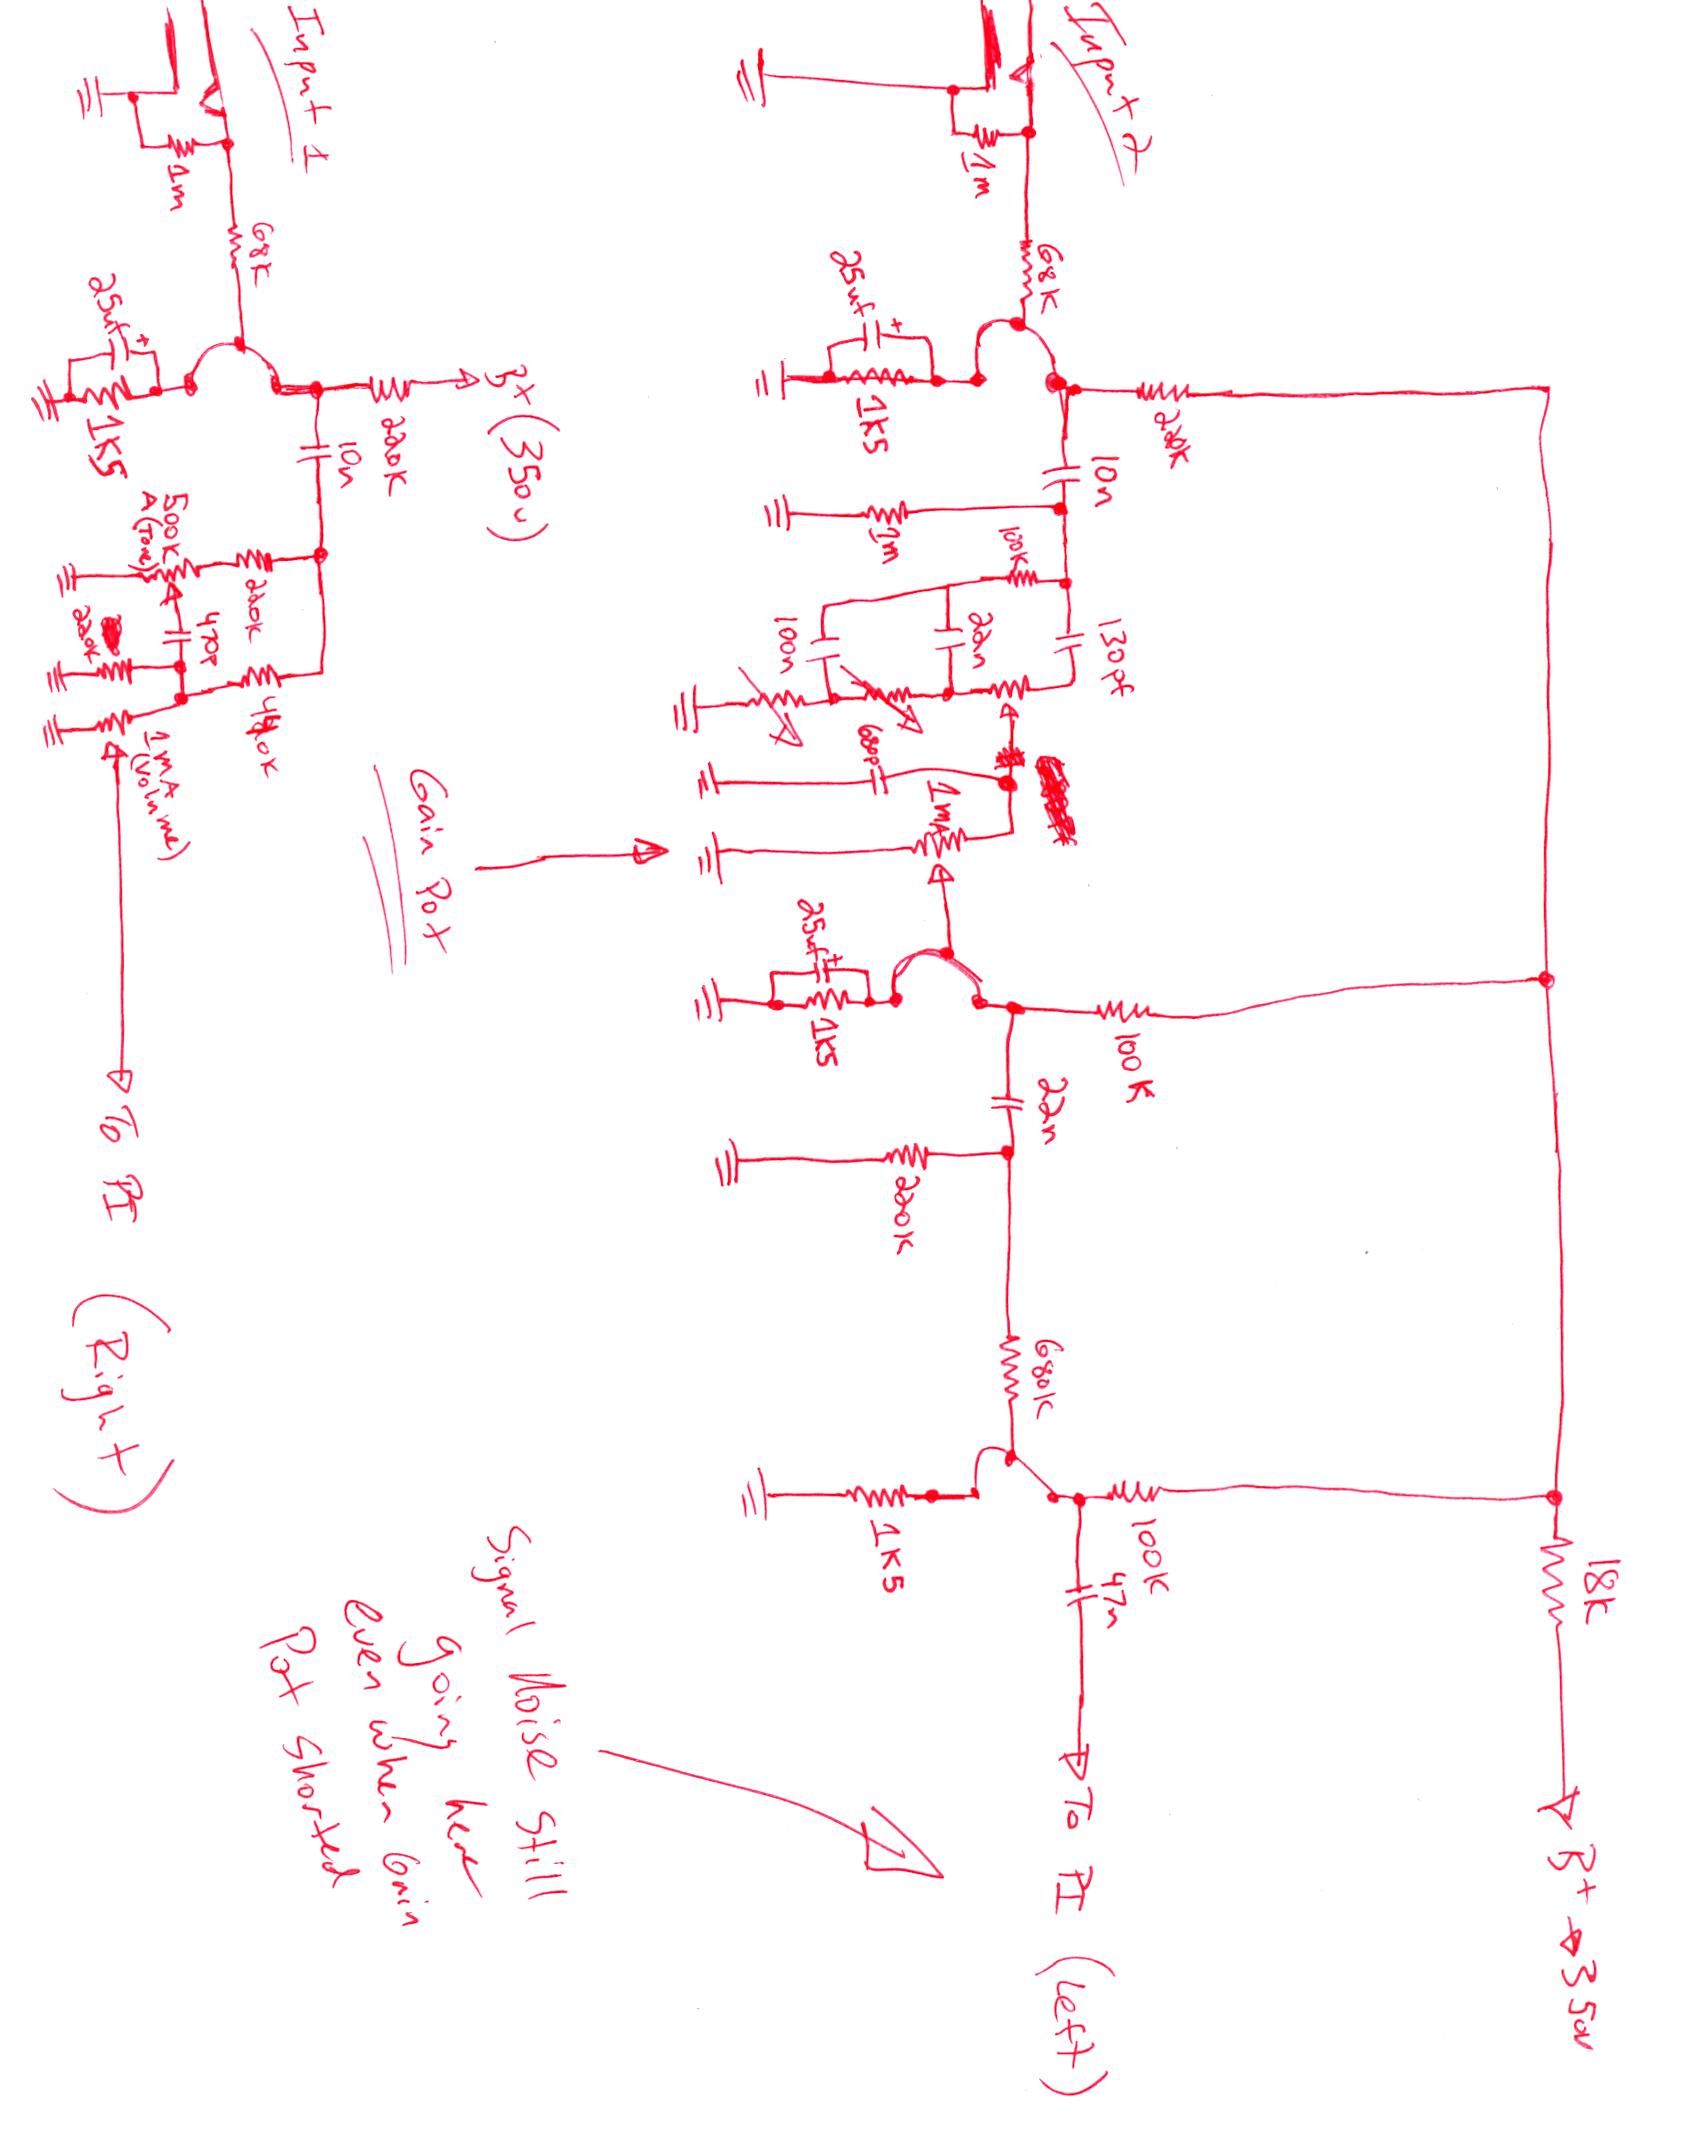 18K
B+ → 350v
220K
100K
100K
Input 2
1m
68K
10n
130pf
22n
47n
To PI (Left)
25uf
+
1K5
1m
100K
22n
100n
680p
1mA
25uf
+
1K5
220K
680K
1K5
Gain Pot
Signal Noise still
going here
even when Gain
Pot shorted
B+ (350v)
Input 1
1m
68K
220K
10n
25uf
+
1K5
500K
A (Tone)
220K
470p
220K
1mA
(Volume)
To PI (Right)